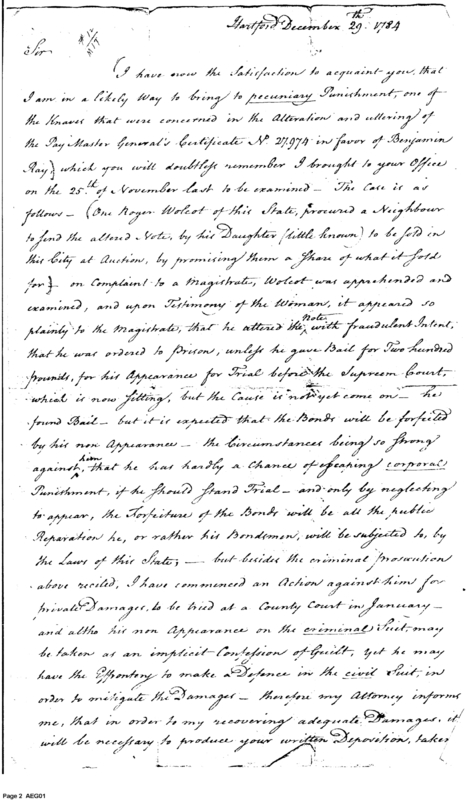 Hartford December 29th 1784
Sir
I have now the Satisfaction to acquaint you, that
I am in a likely Way to bring to pecuniary Punishment, one of
the Knaves that were concerned in the Alteration and uttering of
the Pay Master General's Certificate No 27,974 in favor of Benjamin
Ray} which you will doubtless remember I brought to your Office
on the 25.th of November last to be examined – The Case is as
follows – (One Roger Wolcot of this State, procured a Neighbour
to send the altered Note, by his Daughter (little known) to be sold in
this City at Auction, by promising them a Share of what it sold
for} – on Complaint to a Magistrate, Wolcot was apprehended and
examined, and upon Testimony of the Woman, it appeared so
plainly to the Magistrate, that he altered the Note with fraudulent Intent,
that he was ordered to Prison, unless he gave Bail for Two hundred
pounds, for his Appearance for Trial before the Supreme Court,
which is now sitting, but the Cause is not yet come on – he
found Bail – but it is expected that the Bonds will be forfeited
by his non Appearance – the Circumstances being so strong
against him, that he has hardly a Chance of escaping corporal
Punishment, if he should stand Trial – and only by neglecting
to appear, the Forfeiture of the Bonds will be all the public
Reparation he, or rather his Bondsmen, will be subjected to, by
the Laws of this State; – but besides the criminal Prosecution
above recited, I have commenced an Action against him for
private Damages, to be tried at a County Court in January –
and altho his non Appearance on the criminal Suit may
be taken as an implicit Confession of Guilt, yet he may
have the Effrontory to make a Defence in the civil Suit, in
order to mitigate the Damages – therefore my Attorney informs
me, that in order to my recovering adequate Damages, it
will be necessary to produce your written Deposition, taken
Page 2 AEG01